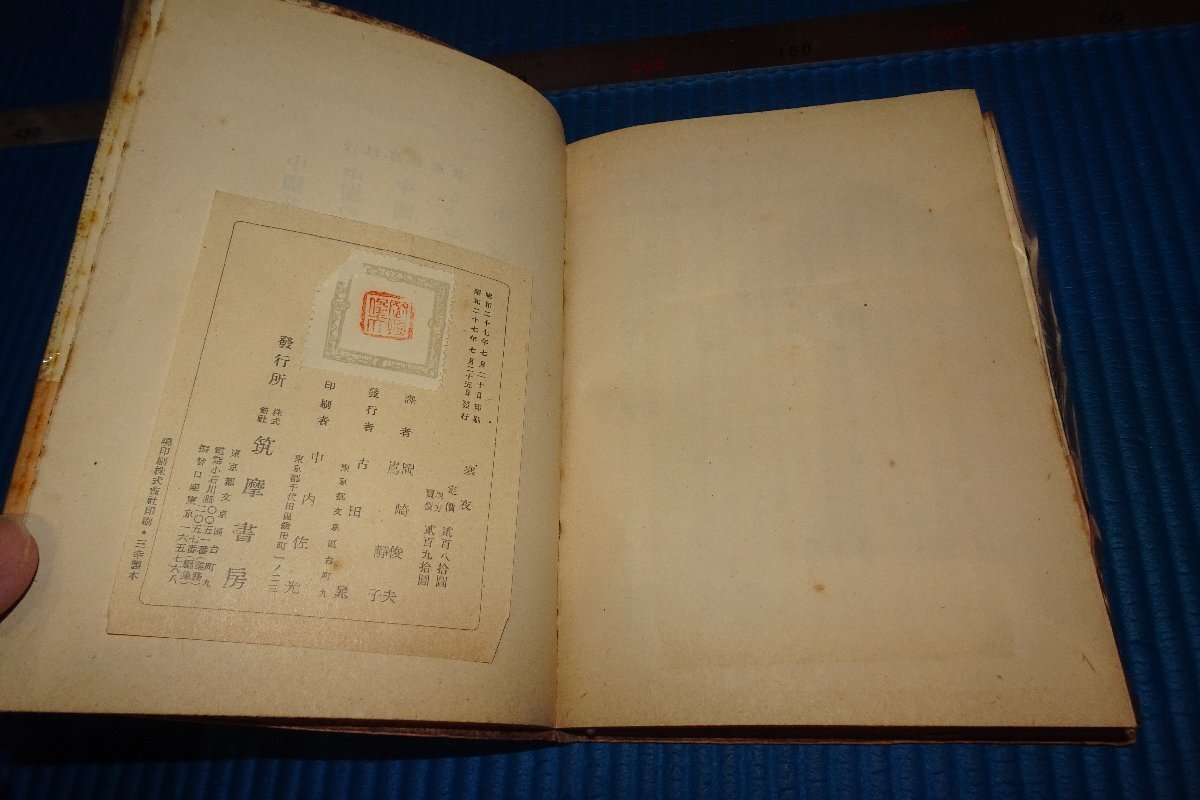 昭和二十七年七月二十日印刷
昭和二十七年七月二十五日發行
寒夜
定價 貳百八拾圓
地方賣價 貳百九拾圓
譯者 岡崎俊夫
鳥靜子
發行者 古田晁
東京都文京區台町九
印刷者 中内佐光
東京都千代田區飯田町一ノ二三
發行所 株式會社 筑摩書房
東京都文京區台町九
振替口座東京一六五七六八
150
50